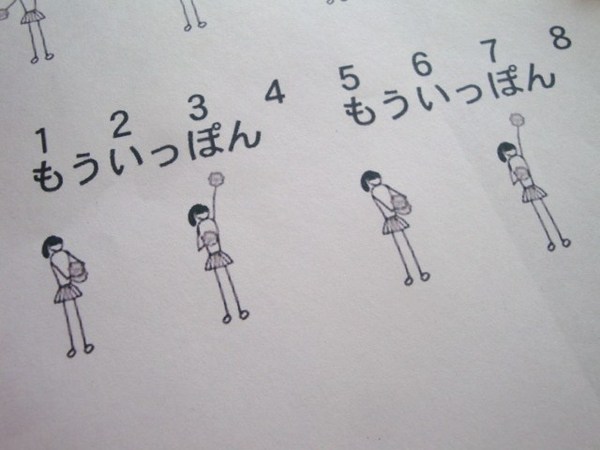 1 2 3 4
もういっぽん
5 6 7 8
もういっぽん